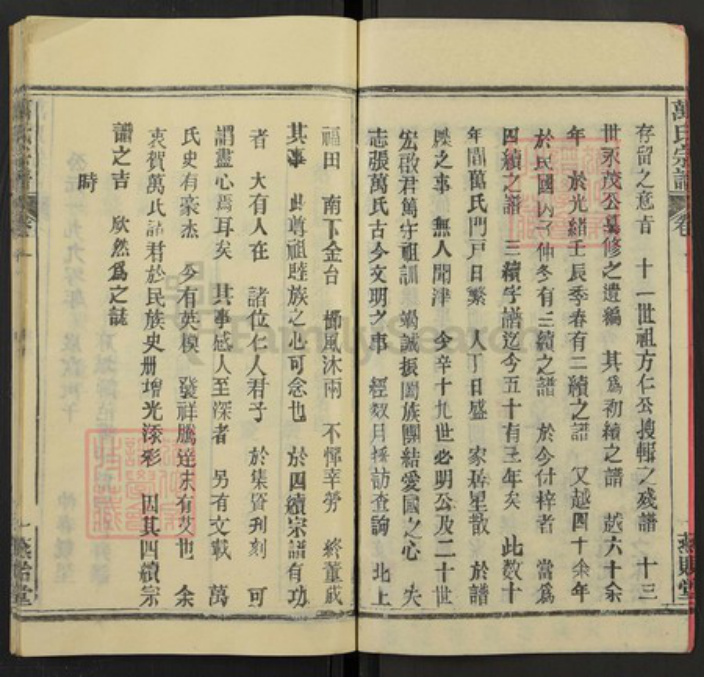 萬氏宗譜 卷一
存留之意旨 十一世祖方仁公搜輯之殘譜 十三
世永茂公纂修之遺編 其爲初續之譜 越六十余
年 於光緒壬辰季春有二續之譜 又越四十余年
於民國丙子仲冬有三續之譜 於今付梓者 當爲
四續之譜 三續字譜迄今五十有三年矣 此數十
年間萬氏門戸日繁 人丁日盛 家居星散 於譜
牒之事 無人聞津 今幸十九世必明公及二十世
宏啟君篤守祖訓 竭誠振闔族團結愛國之心 矢
志張萬氏古今文明之事 經数月採訪查詢 北上
燕貽堂
福田 南下金台 櫛風沐雨 不憚辛勞 終董成
其事 此尊祖睦族之心可念也 於四續宗譜有功
者 大有人在 諸位仁人君子 於集資刋刻 可
謂盡心焉耳矣 其事感人至深者 另有文載 萬
氏史有豪杰 今有英模 發祥騰達未有艾也 余
衷賀萬氏諸君於民族史册增光添彩 因其四續宗
譜之吉 欣然爲之誌
時
萬氏宗譜 卷一
燕貽堂
FamilySearch